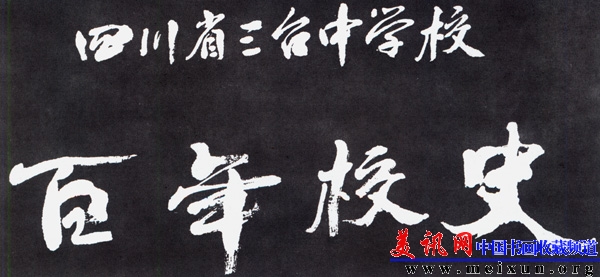 四川省三台中学校
百年校史
美讯网中国书画收藏频道
www.meixun.org